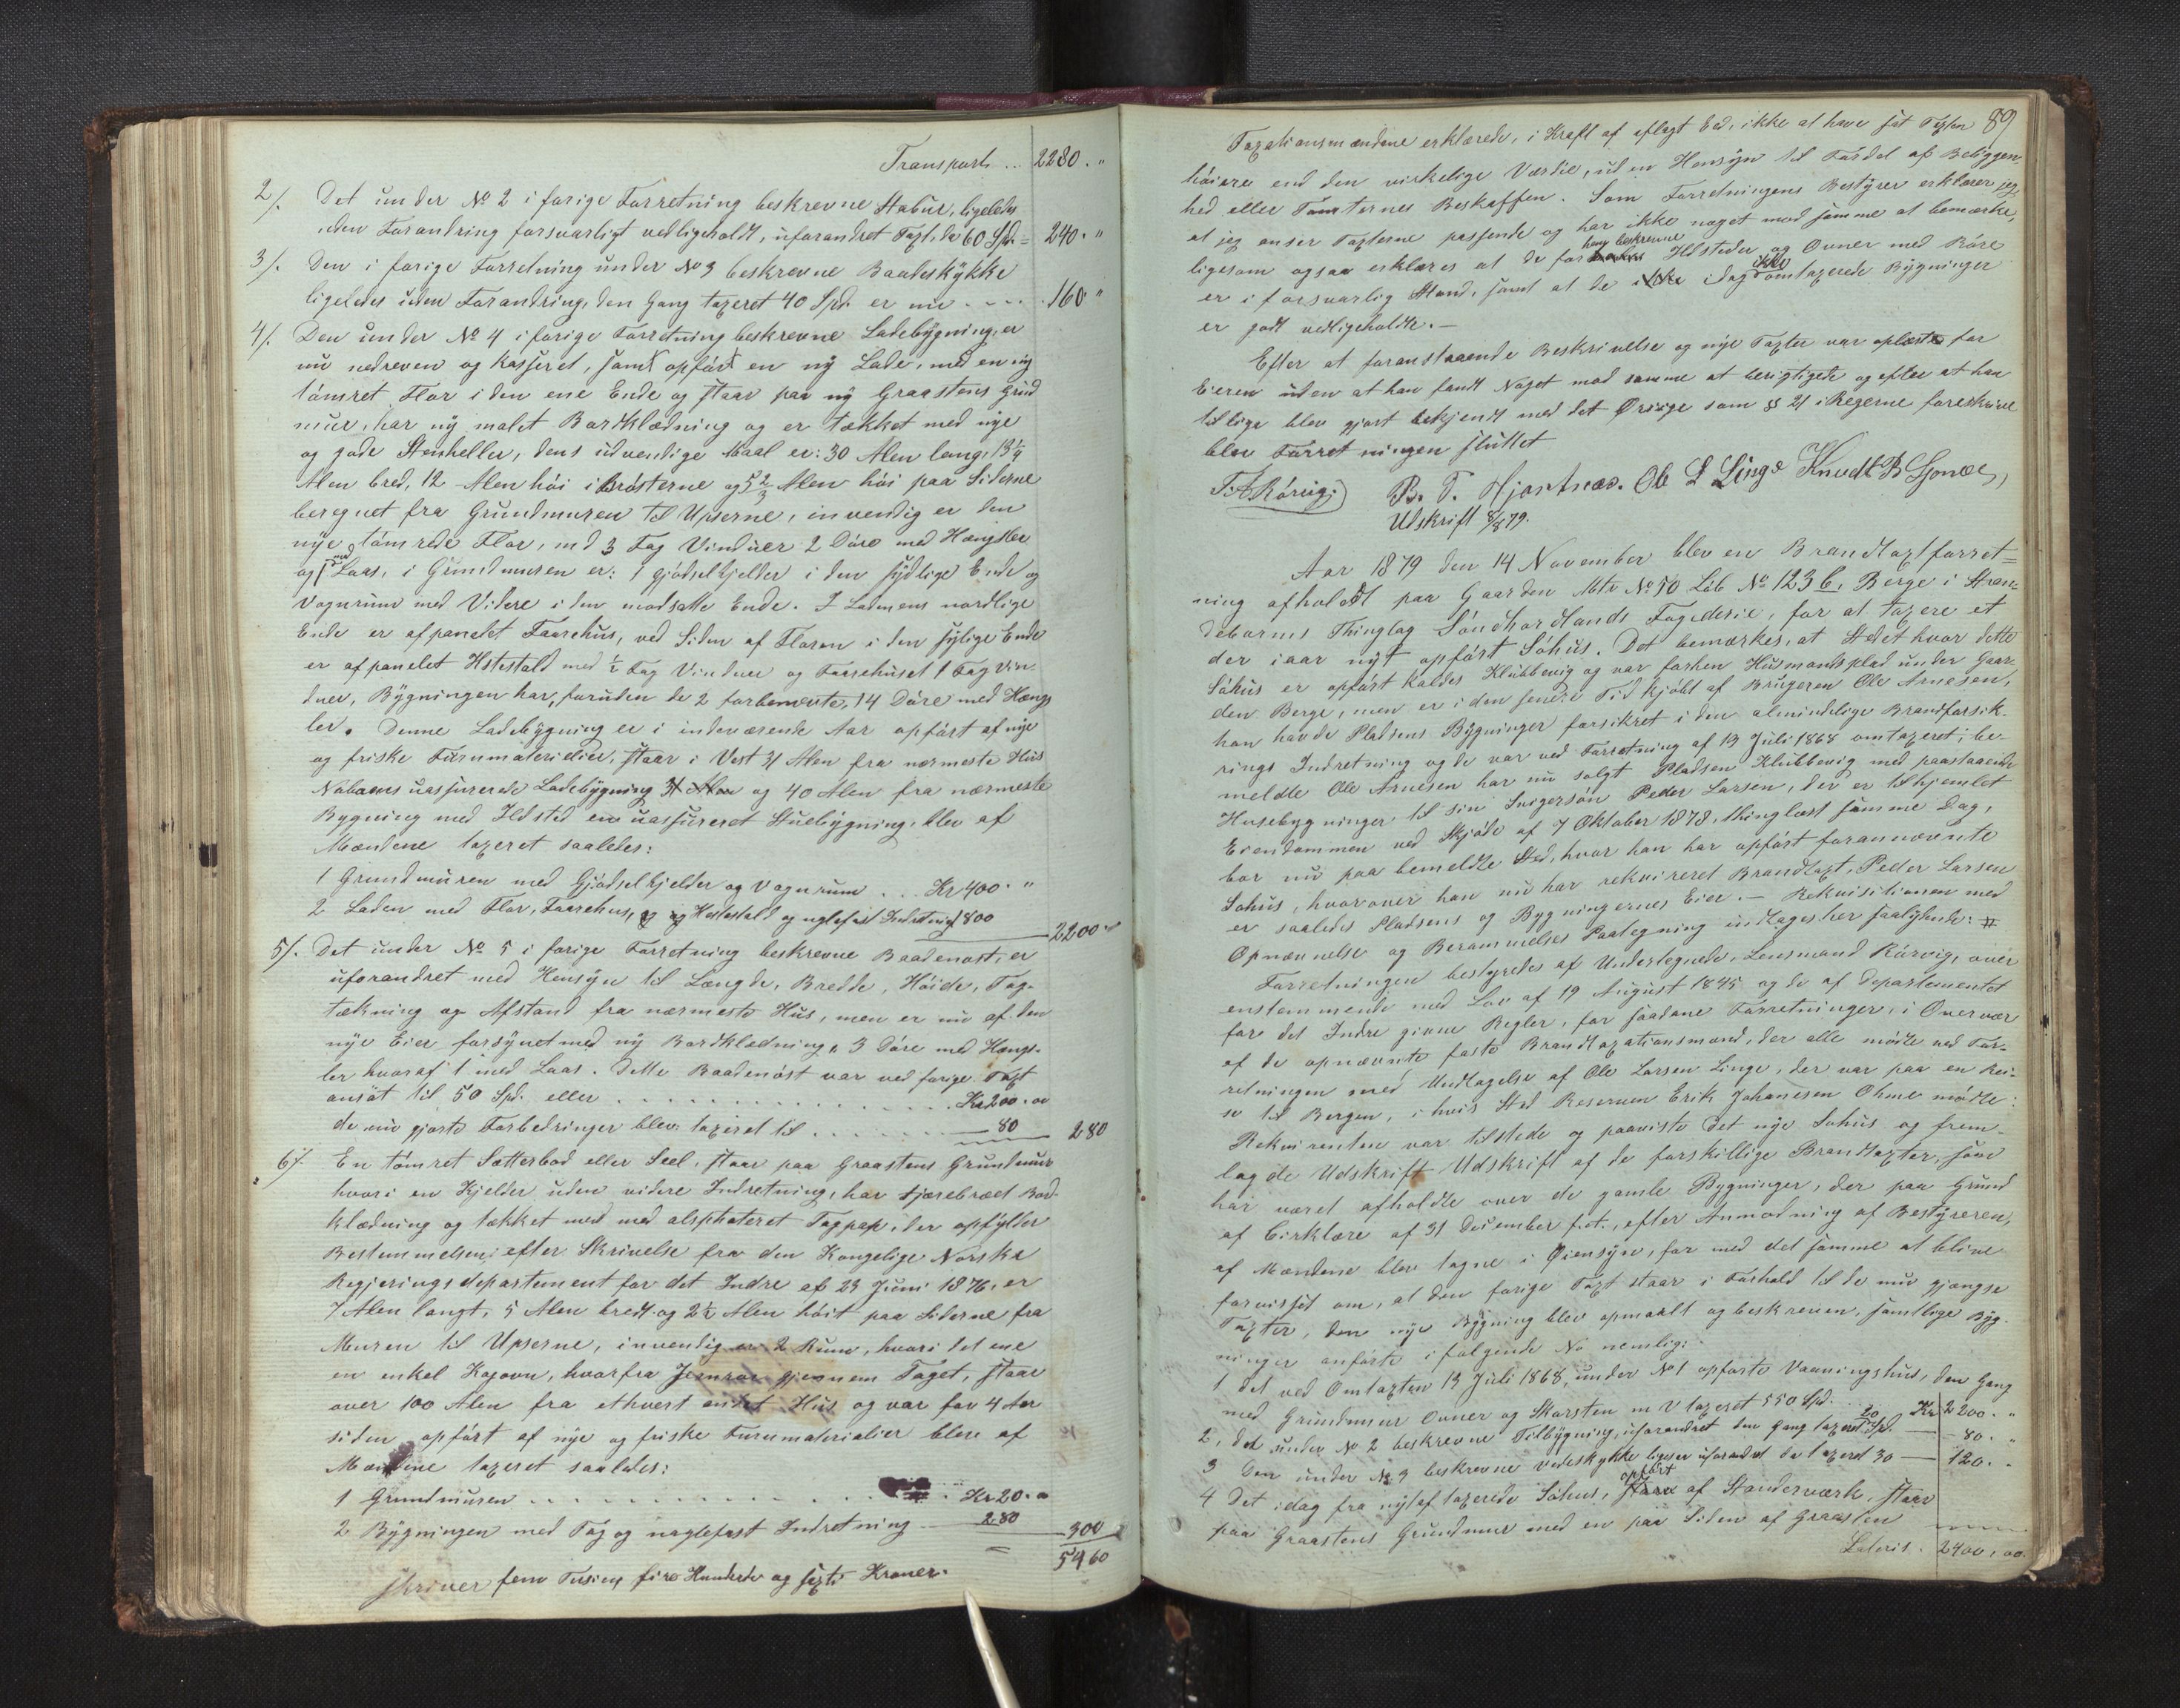 Transport .. 2280. "
2/. Det under No 2 i forige Forretning beskrevne Stabur, ligeledes
uden Forandring forsvarligt vedligeholdt, uforandret Taxt, da 60 Spd. = 240. "
3/. Den i forige Forretning under No 3 beskrevne Baadeskykke
ligeledes uden Forandring, den Gang taxeret 40 Spd. er nu ---- 160 "
4/. Den under No 4 i forige Forretning beskrevne Ladebygning, er
nu nedreven og kasseret, samt opført en ny Lade, med en ny
tømret Flor i den ene Ende og staar paa ny Graastens Grund
mur, har ny malet Bordklædning og er tækket med nye
og gode Stenheller, dens udvendige Maal er: 30 Alen lang, 13 1/4
Alen bred, 12 Alen høi i Brøsterne og 5 2/3 Alen høi paa Siderne
beregnet fra Grundmuren til Upserne, invendig er den
nye tømrede Flor, med 3 Fag Vinduer 2 Døre med Hængsler
og 1 med Laas, i Grundmuren er: 1 Gjødselkjelder i den sydlige Ende og
Vognrum med Videre i den modsatte Ende. I Ladens nordlige
Ende er afpanelet Faarehus, ved Siden af Floren i den sylige Ende
er afpanelet Hstestald med 1/2 Fag Vinduer og Faarehuset 1 Fag Vin-
duer, Bygningen har, foruden de 2 forbenævnte, 14 Døre med Hængs
ler. Denne Ladebygning er i indeværende Aar opført af nye
og friske Furumaterialier, staar i Vest 31 Alen fra nærmeste Hus
Naboens uassurerede Ladebygning 31 Alen og 40 Alen fra nærmeste
Bygning med Ildsted en uassureret Stuebygning, blev af
Mændene taxeret saaledes:
1 Grundmuren med Gjødselkjelder og Vognrum ... Kr 400. "
2 Laden med Flor, Faarehus, og Hestestald og naglefast Indretning 1800
2200. "
5/. Det under No 5 i forige Forretning beskrevne Baadenøst, er
uforandret med Hensyn til Længde, Bredde, Høide, Tag-
tækning og Afstand fra nærmeste Hus, men er nu af den
nye Eier forsynet med ny Bordklædning, 3 Døre med Hængs-
ler hvoraf 1 med Laas. Dette Baadenøst var ved forige Taxt
ansat til 50 Spd. eller . . . . . . Kr 200. 00
de nu gjorte Forbedringer blev taxeret til . . . . — 80 280
6/. En tømret Sætterbod eller Seel, staar paa Graastens Grundmur
hvori en Kjelder uden videre Indretning, har tjærebræet Bord-
klædning og tækket med med alsphateret Tagpap, der opfylder
Bestemmelsen efter Skrivelse fra den Kongelige Norske
Regjerings departement for det Indre af 23 Juni 1876. er
7 Alen langt, 5 Alen bredt og 2 1/2 Alen høit paa Siderne fra
Muren til Upserne, invendig er 2 Rum, hvori det ene
en enkel Kogovn, hvorfra Jernrør gjennem Taget, staar
over 100 Alen fra ethvert andet Hus og var for 4 Aar
siden opført af nye og friske Furumaterialier blev af
Mændene taxeret saaledes:
1 Grundmuren . . . . . . Kr 20. "
2 Bygningen med Tag og naglefast Indretning — 280
300
5460
skriver fem Tusind fire Hundrede og sexti Kroner.
89
Taxationsmændene erklærede, i Kraft af aflagt Eed, ikke at have sat Taxten
høiere end den virkelige Værdie, uden Hensyn til Fordel af Beliggen-
hed eller Tomternes Beskaffen. Som Forretningens Bestyrer erklærer jeg
at jeg anser Taxterne passende og har ikke noget mod samme at bemærke,
ligesom ogsaa erklæres at de for beskrevne Ildsteder og Ovner med Røre
er i forsvarlig Stand, samt at de idag ikke omtaxerede Bygninger
er godt vedligeholdte. —
Efter at foranstaaende Beskrivelse og nye Taxter var oplæste for
Eieren uden at han fandt Noget mod samme at berigtigede og efter at han
tillige blev gjort bekjendt med det Øvrige som § 21 i Regerne foreskriver
blev Forretningen sluttet
T. A. Rörvig. B. T. Hjartnæs. Ole L Linge Knudt B Gjøn
Udskrift 8/8 79.
Aar 1879 den 14 November blev en Brandtaxtforret=
ning afholdt paa Gaarden Mtr No 50 Løb No 123 b. Berge i Stran-
debarms Thinglag Søndhordlands Fogderie, for at taxere et
der iaar nyt opført Søhus. Det bemærkes, at Stedet hvor dette
Søhus er opført kaldes Klubbevig og var forhen Husmandsplads under Gaar-
den Berge, men er i den senere Tid kjøbt af Brugeren Ole Arnesen,
han havde Pladsens Bygninger forsikret i den almindelige Brandforsik-
rings Indretning og de var ved Forretning af 13 Juli 1868 omtaxeret; be-
meldte Ole Arnesen har nu solgt Pladsen Klubbevig med paastaaende
Husebygninger til sin Svigersøn Peder Larsen, der er tilhjemlet
Eiendommen ved Skjøde af 7 Oktober 1878, thinglæst samme Dag,
bor nu paa bemeldte Sted, hvor han har opført forannævnte
Søhus, hvorover han nu har rekvireret Brandtaxt, Peder Larsen
er saaledes Pladsens og Bygningernes Eier. — Rekvisitionen med
Opnævnelse og Berammelses Paategning indtages her saalydende: #
Forretningen bestyredes af Undertegnede, Lensmand Rørvig, over
enstemmende med Lov af 19 August 1845 og de af Departementet
for det Indre givne Regler, for saadane Forretninger, i Overvær
af de opnævnte faste Brandtaxationsmænd, der alle mødte ved For-
retningen med Undtagelse af Ole Larsen Linge, der var paa en Rei-
se til Bergen, i hvis Sted Reserven Erik Johanesen Øhme mødte:
Rekvirenten var tilstede og paaviste det nye Søhus og frem-
lagde Udskrift Udskrift af de forskillige Brandtaxter, som
har været afholdte over de gamle Bygninger, der paa Grund
af Cirklære af 31 December f. A., efter Anmodning af Bestyreren,
af Mændene blev tagne i Øiensyn, for med det samme at blive
forvisset om, at den forige Taxt staar i Forhold til de nu gjængse
Taxter, den nye Bygning blev opmaalt og beskreven, samtlige Byg-
ninger anføres i følgende No nemlig:
1 det ved Omtaxten 13 Juli 1868, under No 1 opførte Vaaningshus, den Gang
med Grundmur Ovner og Skorsten m V taxeret 550 Spd. . Kr 2200. "
2, det under No 2 beskrevne Tilbygning, uforandret den Gang taxeret 20 Spd. — 80. "
3 Den under No 3 beskrevne Vedeskykke ligesaa uforandret da taxeret 30 — 120. "
4 Det idag fra nyt af taxerede Søhus, opført af Standerværk, staar
paa Graastens Grundmur med en paa Siden af Graasten
Lateris. 2400, 00.